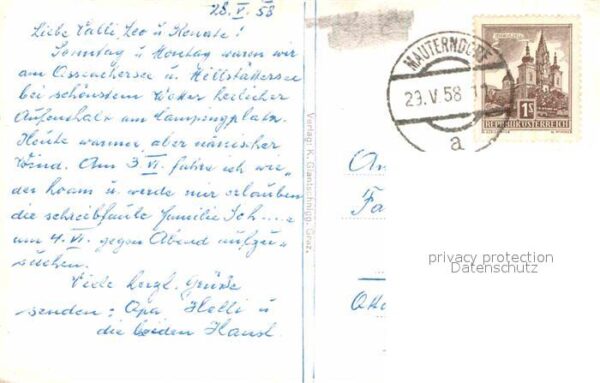 28.V.58
Liebe Valli, Leo u. Renate!
Sonntag u. Montag waren wir
am Ossiachersee u. Millstättersee
bei schönstem Wetter herrlicher
Aufenthalt am Campingplatz.
Heute warmer, aber närrischer
Wind. Am 3.VI. fahre ich wie-
der hoam u. werde mir erlauben
die schreibfaule Familie Sch....a
am 4.VI. gegen Abend aufzu-
suchen.
Viele herzl. Grüße
senden: Opa, Helli u
die beiden Hansl.
Verlag: K. Glantschnigg, Graz.
MAUTERNDORF
29.V.58 11
a
1S
REPUBLIK ÖSTERREICH
An
Fa
Otto
privacy protection
Datenschutz